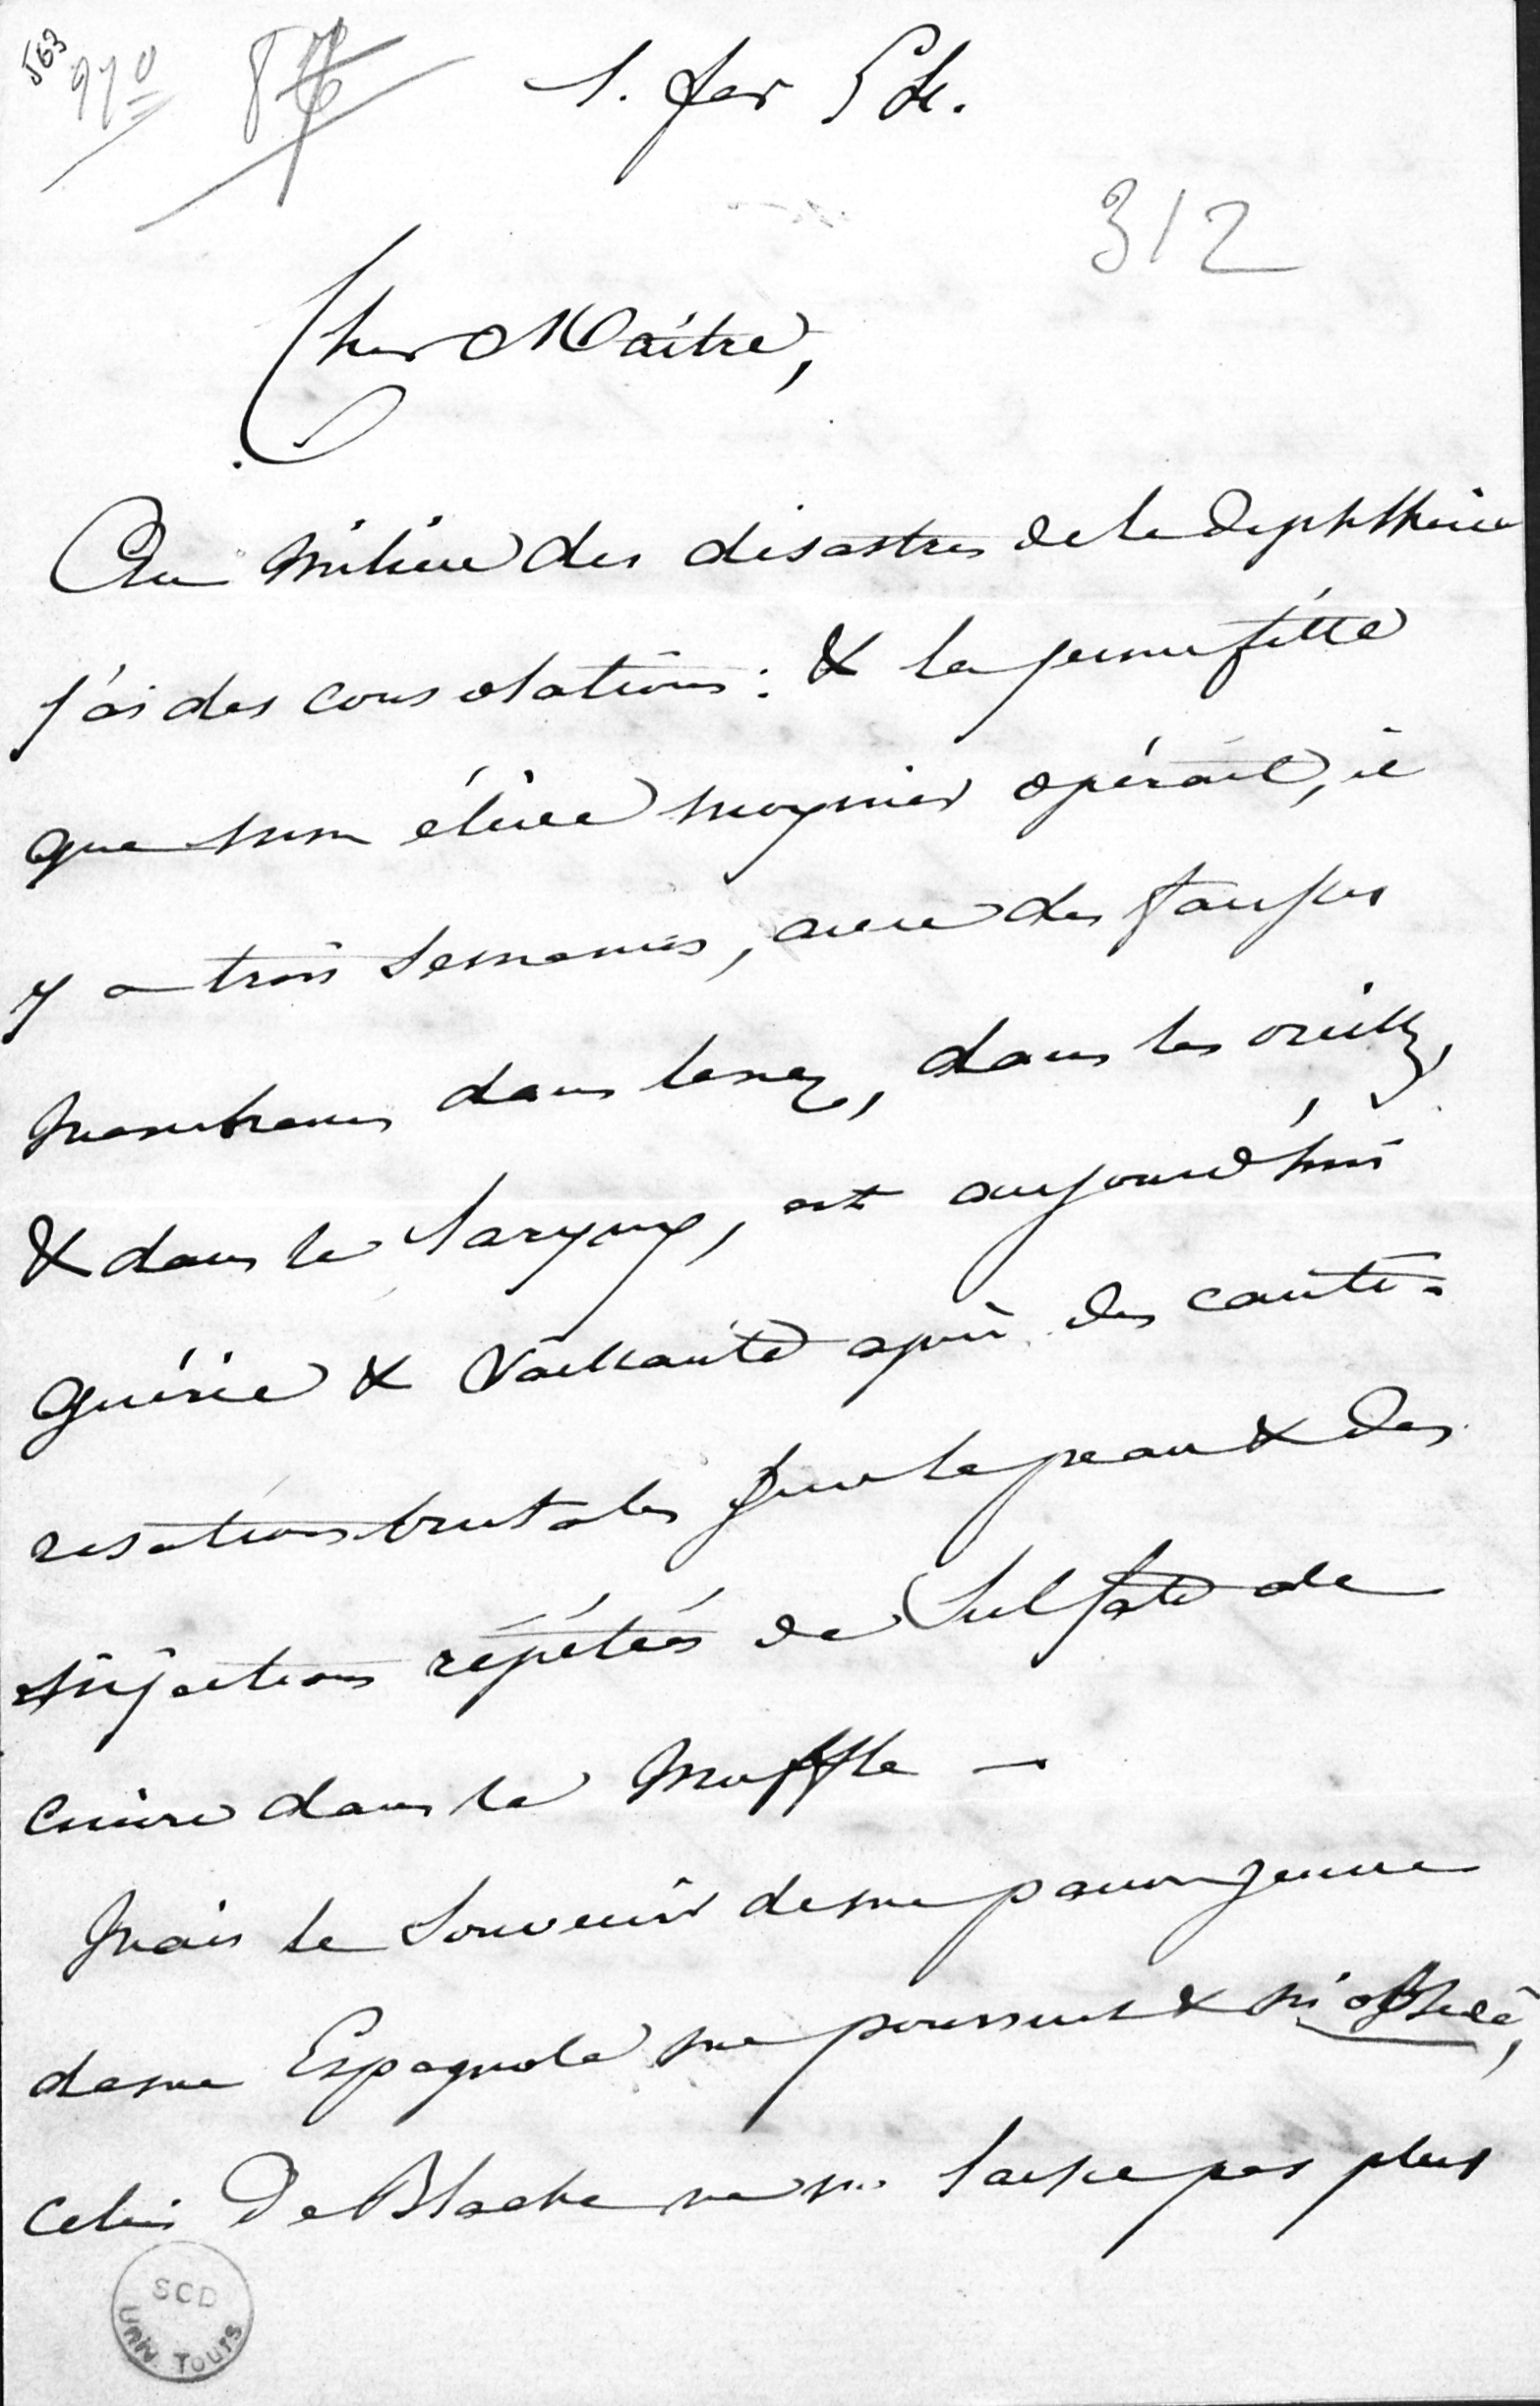 563
970
876
1. fev 58.
312
Cher Maître,
Au milieu des désastres de la diphthérie
j'ai des consolations : & la jeune fille
que mon élève Moynier opérait, il
y a trois semaines, avec des fausses
membranes dans le nez, dans les oreilles,
& dans le larynx, est aujourd'hui
guérie & vaillante après des cauté-
risations brutales sur la peau & des
injections répétées de Sulfate de
cuivre dans le muffle —
Mais le souvenir de ma pauvre jeune
dame Espagnole me poursuit & m'obsède,
celui De Blache ne me laisse pas plus
SCD
UNIV. TOURS